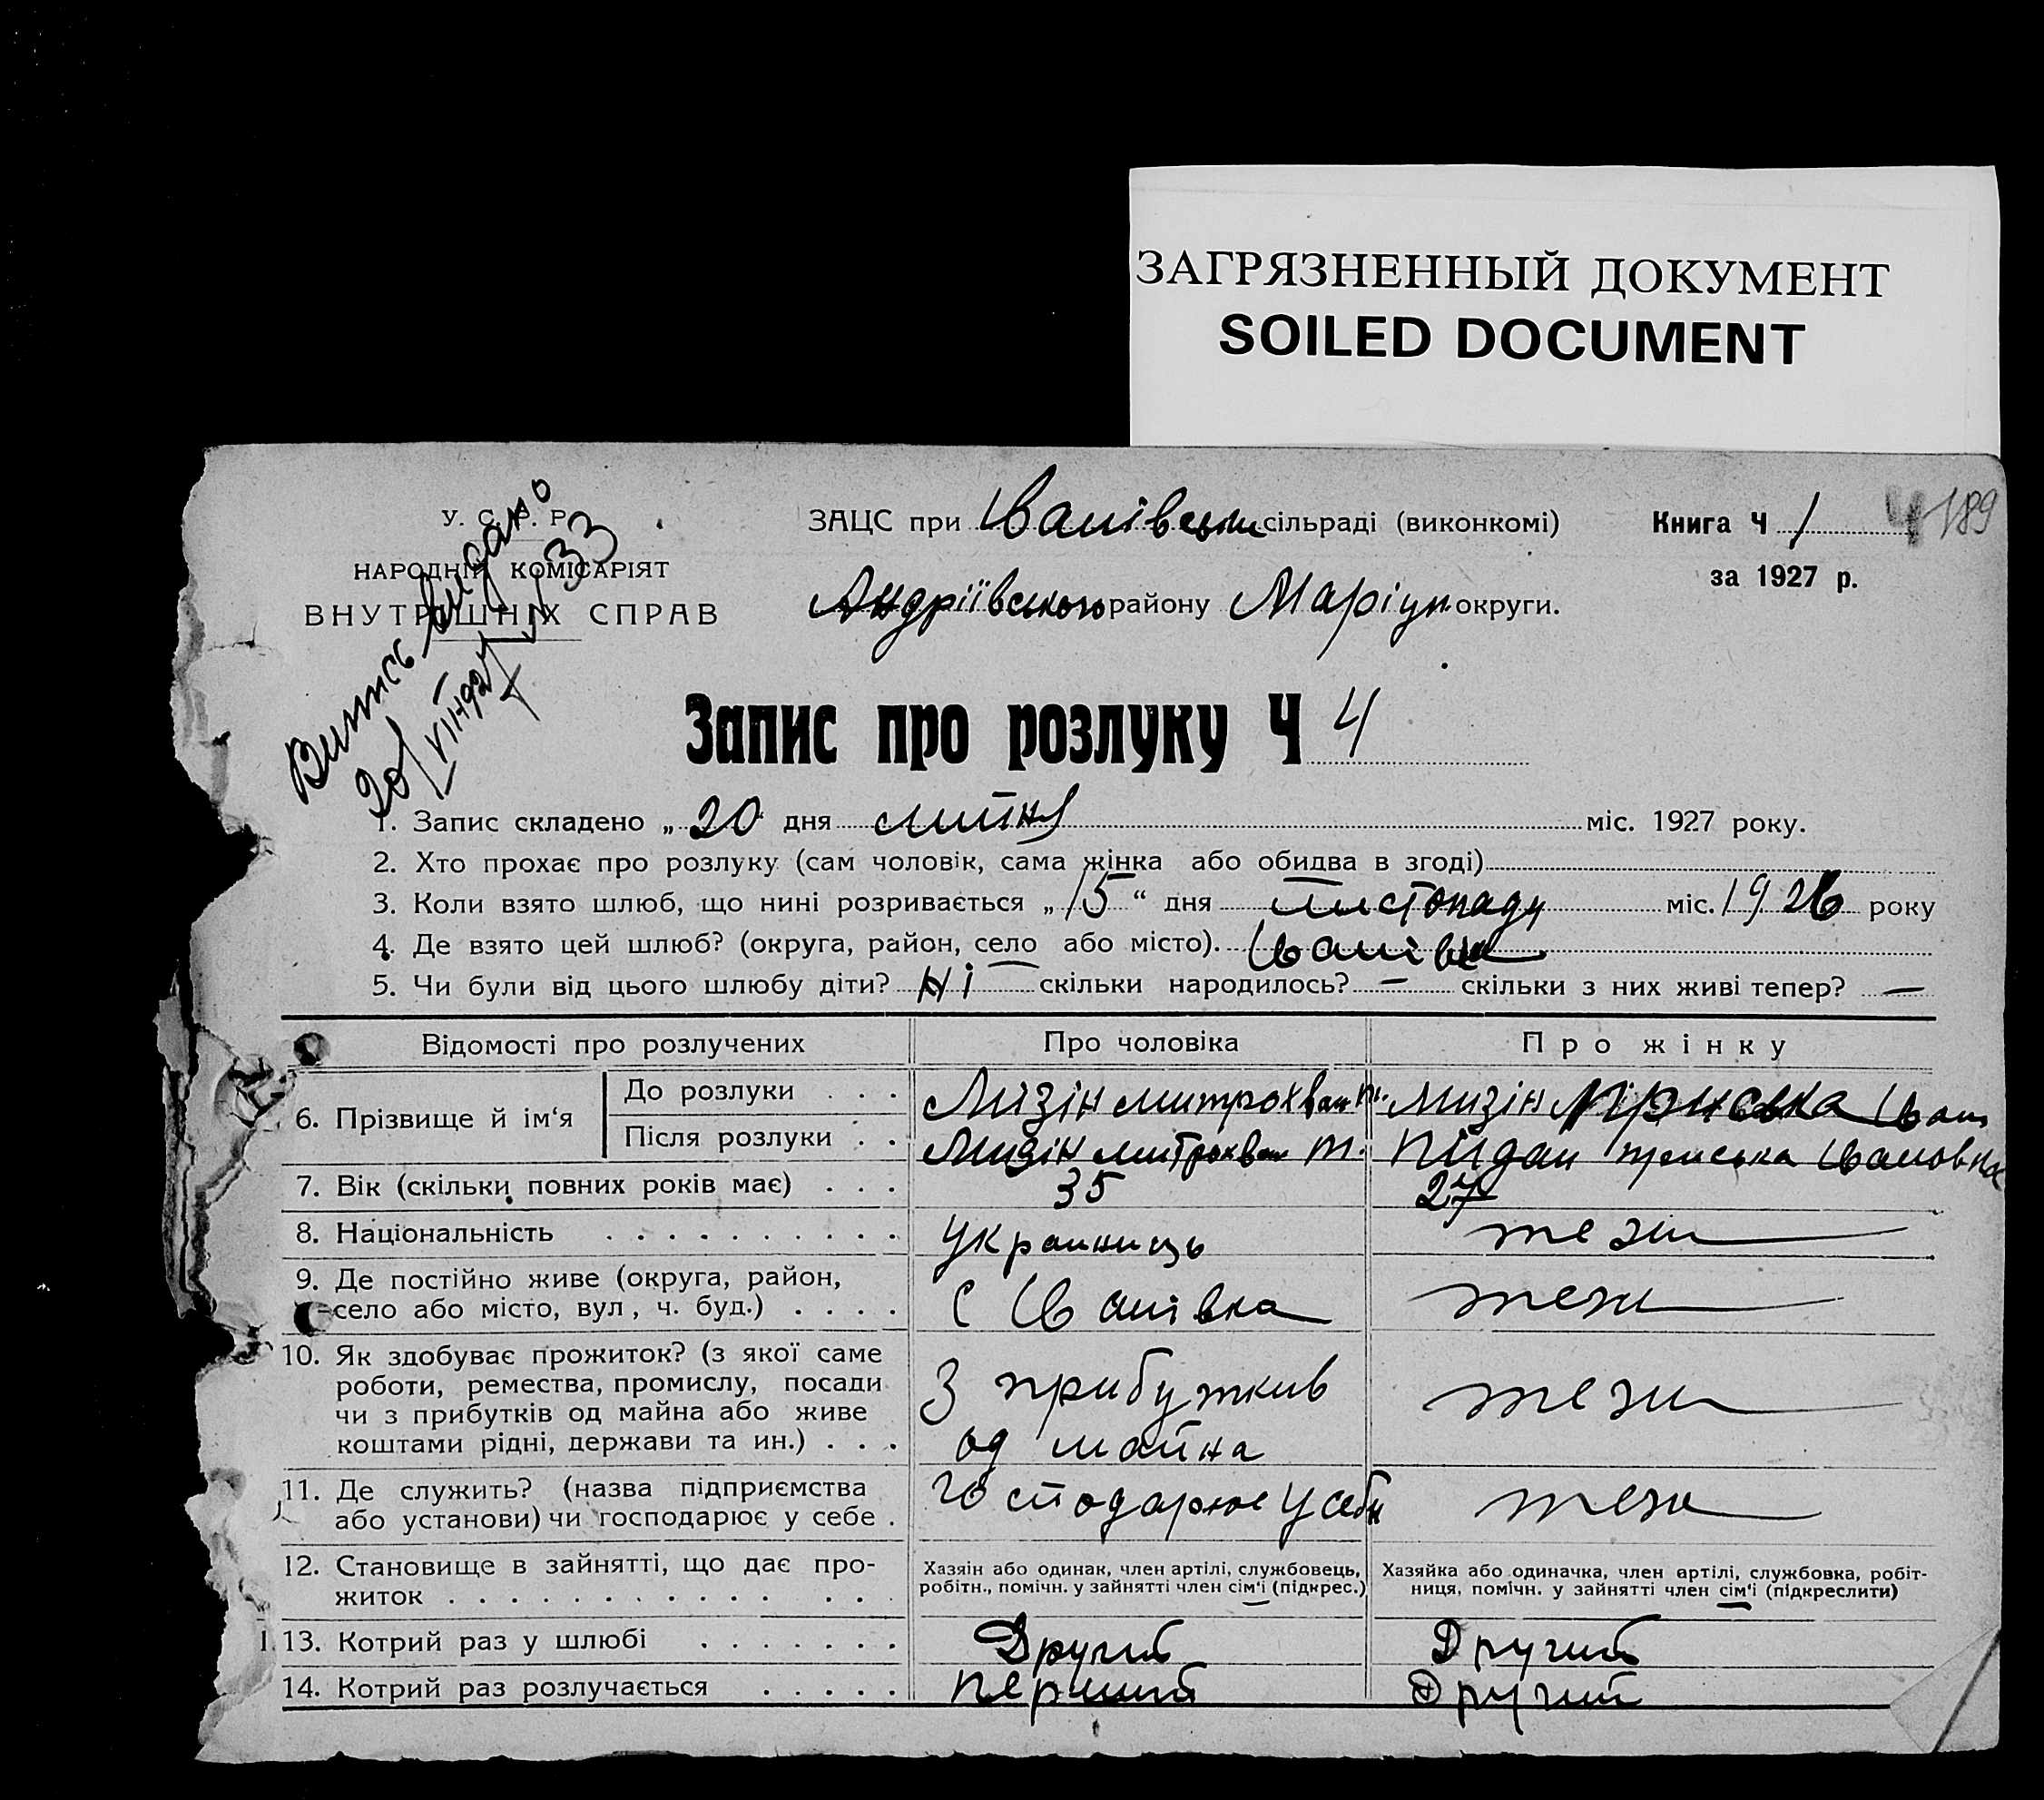 ЗАГРЯЗНЕННЫЙ ДОКУМЕНТ
SOILED DOCUMENT
У. С. Р. Р.
НАРОДНІЙ КОМІСАРІЯТ
ВНУТРІШНІХ СПРАВ
Випись видано
20/VII-1927 33
ЗАЦС при Іванівськи сільраді (виконкомі)
Андріївського району Маріуп. округи.
Книга Ч 1
189
за 1927 р.
Запис про розлуку Ч 4
1. Запис складено „ 20 дня липня міс. 1927 року.
2. Хто прохає про розлуку (сам чоловік, сама жінка або обидва в згоді)
3. Коли взято шлюб, що нині розривається „ 15 “ дня листопаду міс. 1926 року
4. Де взято цей шлюб? (округа, район, село або місто). Іванівка
5. Чи були від цього шлюбу діти? Ні скільки народилось? — скільки з них живі тепер? —
Відомості про розлучених Про чоловіка Про жінку
6. Прізвище й ім‘я
До розлуки . . . Мизін Митрохван Т. Мизін Іван
Після розлуки . . Мизін Митрохван Т. Ивановна
7. Вік (скільки повних років має) . . . 35 27
8. Національність . . . . . . . . . . Украинець тези
9. Де постійно живе (округа, район,
село або місто, вул, ч. буд.) . . . . С Іванівка тези
10. Як здобуває прожиток? (з якої саме
роботи, ремества, промислу, посади
чи з прибутків од майна або живе
коштами рідні, держави та ин.) . . .
З прибутків
од майна
тези
11. Де служить? (назва підприємства
або установи) чи господарює у себе .
господарює у себи тези
12. Становище в зайнятті, що дає про-
житок . . . . . . . . . . . . .
Хазяін або одинак, член артілі, службовець,
робітн., помічн. у зайнятті член сім‘і (підкрес.)
Хазяйка або одиначка, член артілі, службовка, робіт-
ниця, помічн. у зайнятті член сім‘і (підкреслити)
13. Котрий раз у шлюбі . . . . . . . Другий Другий
14. Котрий раз розлучається . . . . . Перший Другий